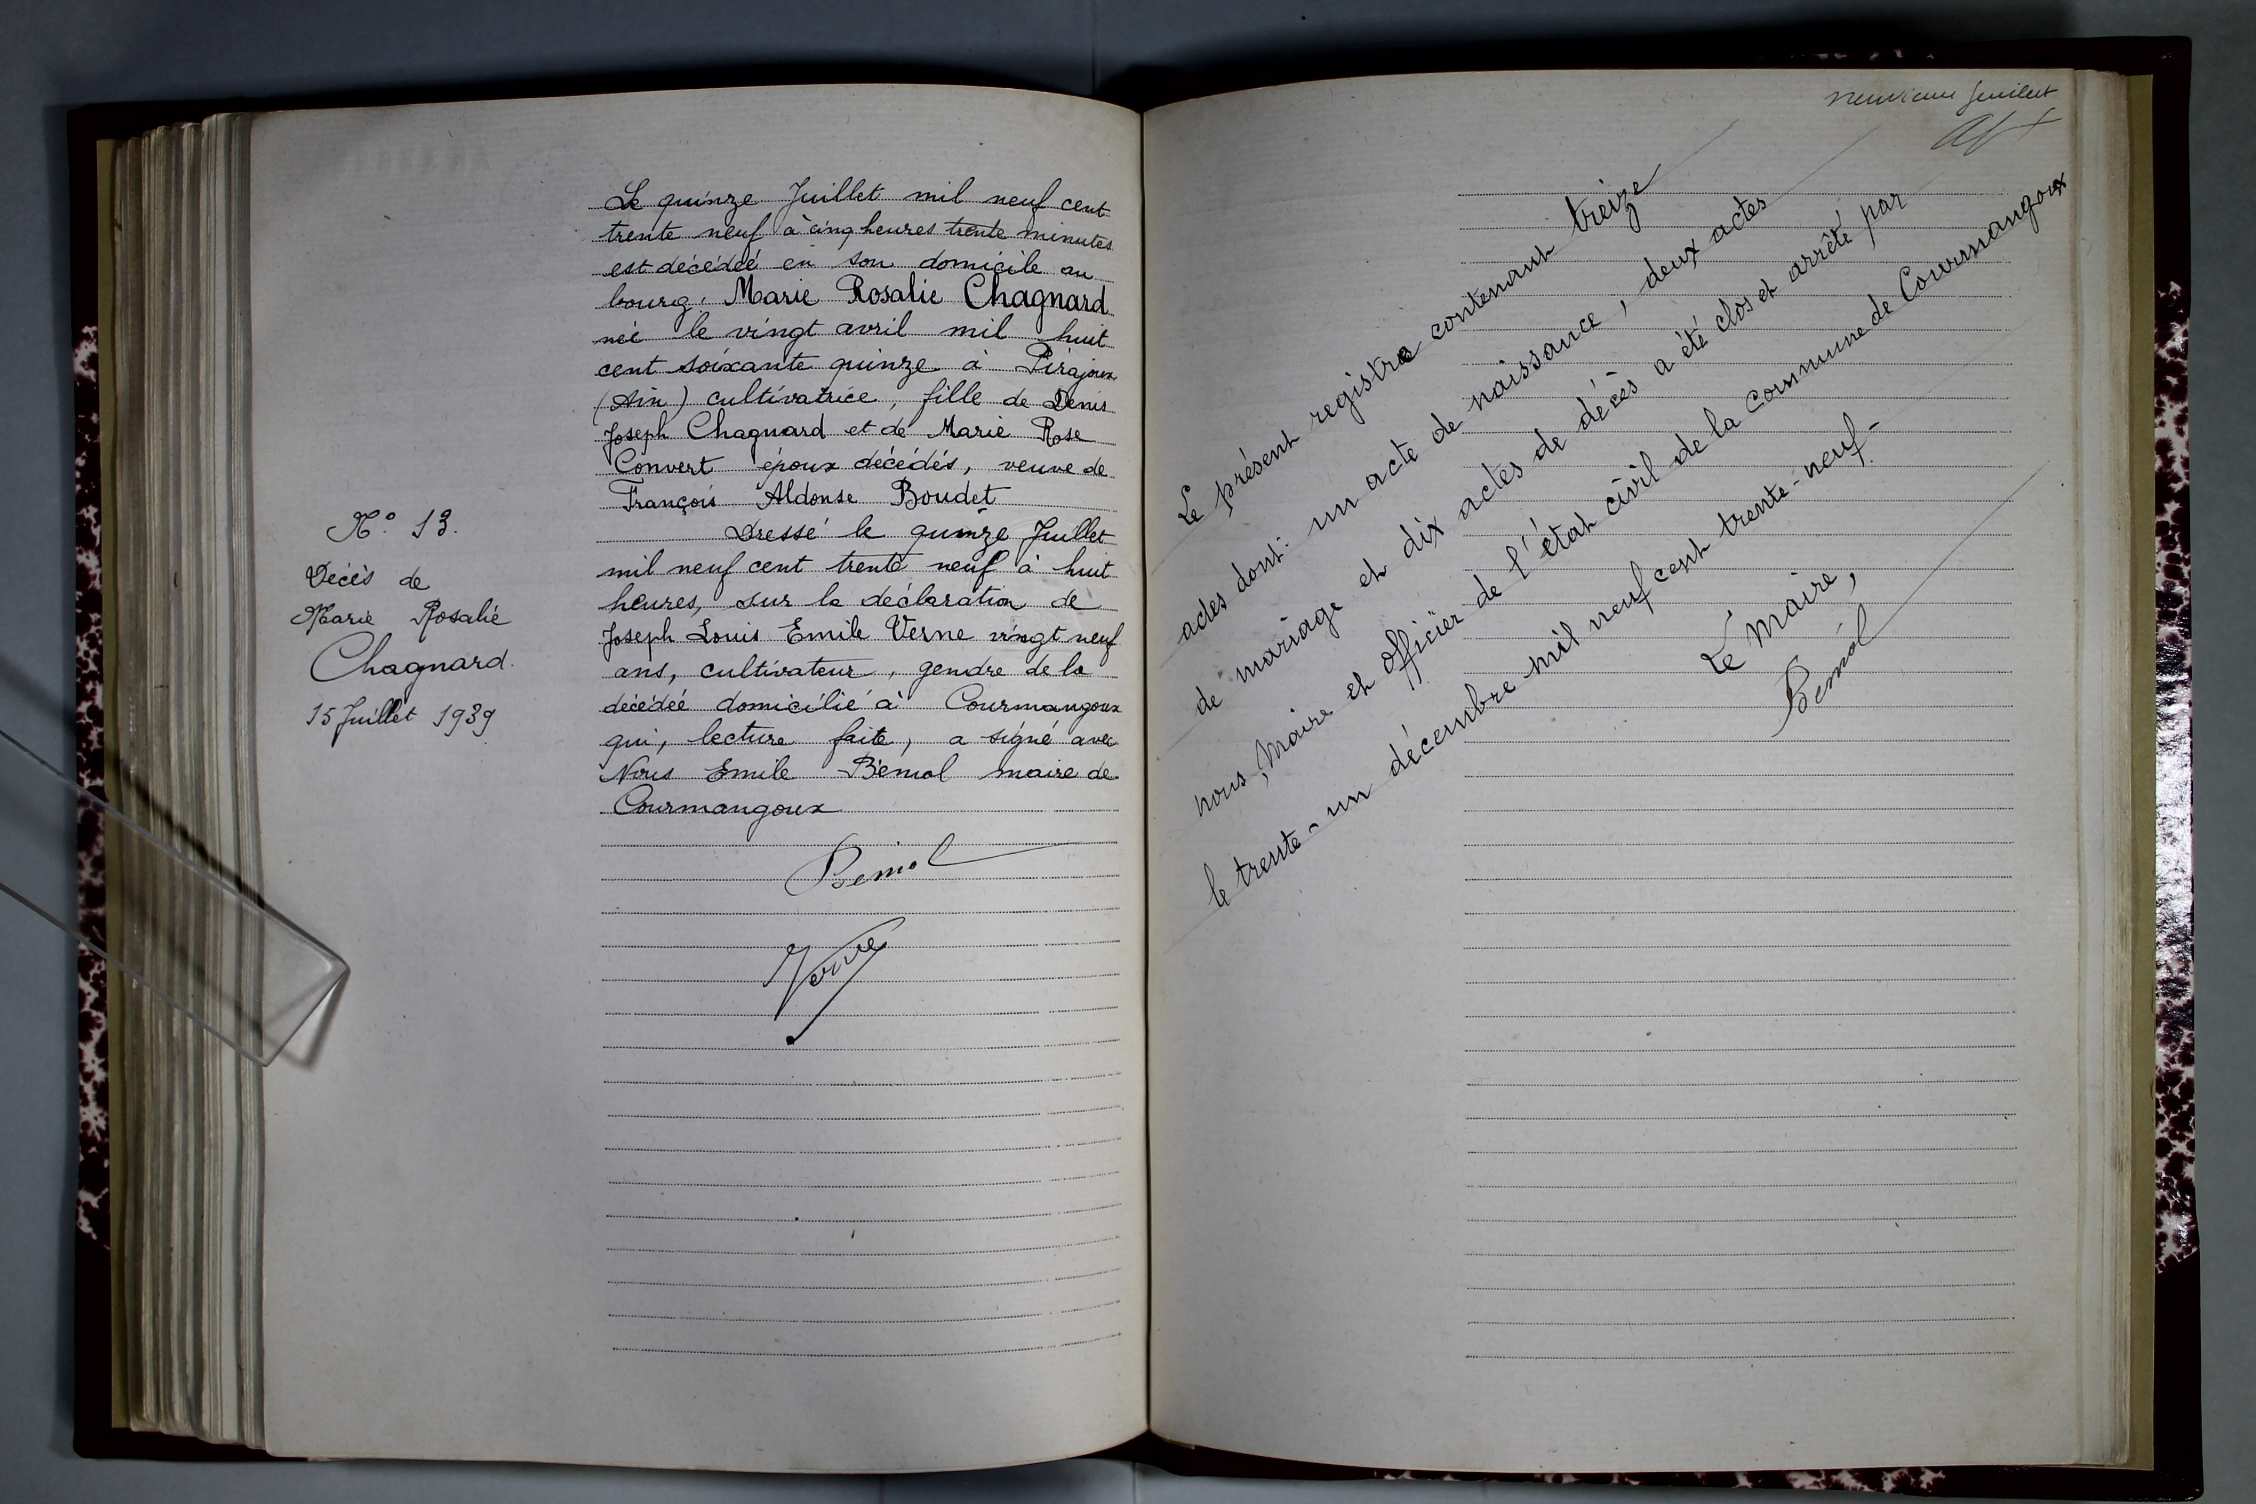 N° 13.
Décès de
Marie Rosalie
Chagnard.
15 Juillet 1939
Le quinze Juillet mil neuf cent
trente neuf à cinq heures trente minutes
est décédée en son domicile au
bourg, Marie Rosalie Chagnard
née le vingt avril mil huit
cent soixante quinze à Pirajoux
(Ain) cultivatrice, fille de Denis
Joseph Chagnard et de Marie Rose
Convert époux décédés, veuve de
François Aldonse Boudet
Dressé le quinze Juillet
mil neuf cent trente neuf à huit
heures, sur la déclaration de
Joseph Louis Emile Verne vingt neuf
ans, cultivateur, gendre de la
décédée domicilié à Courmangoux
qui, lecture faite, a signé avec
Nous Emile Bémol maire de
Courmangoux
Bémol
Verne
neuvième feuillet
Le présent registre contenant treize
actes dont: un acte de naissance, deux actes
de mariage et dix actes de décès a été clos et arrêté par
nous, Maire et officier de l'état civil de la Commune de Courmangoux
le trente-un décembre mil neuf cent trente-neuf-
Le Maire,
Bémol